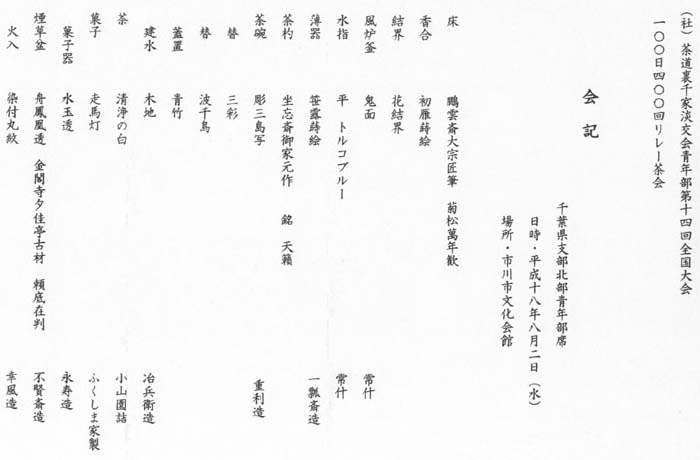 （社）茶道裏千家淡交会青年部第十四回全国大会
一〇〇日四〇〇回リレー茶会
会記
千葉県支部北部青年部席
日時・平成十八年八月二日（水）
場所・市川市文化会館
床　鵬雲斎大宗匠筆　菊松萬年歓
香合　初雁蒔絵
結界　花結界
風炉釜　鬼面　常什
水指　平　トルコブルー　常什
薄器　笹露蒔絵　一瓢斎造
茶杓　坐忘斎御家元作　銘　天籟
茶碗　彫三島写　重利造
替　三彩
替　波千鳥
蓋置　青竹
建水　木地　冶兵衛造
茶　清浄の白　小山園詰
菓子　走馬灯　ふくしま家製
菓子器　水玉透　永寿造
煙草盆　舟鳳凰透　金閣寺夕佳亭古材　頼底在判　不賢斎造
火入　染付丸紋　幸風造